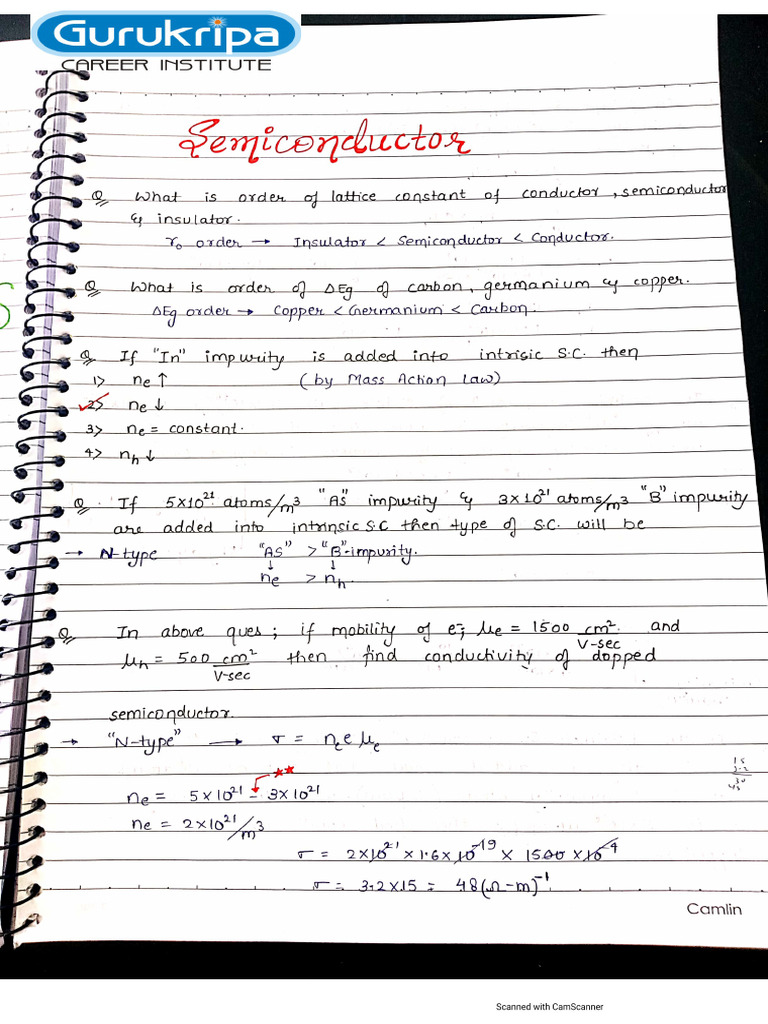 Gurukripa
CAREER INSTITUTE
Semiconductor
Q What is order of lattice constant of conductor, semiconductor
& insulator.
r₀ order → Insulator < Semiconductor < Conductor.
Q What is order of ΔEg of carbon, germanium & copper.
ΔEg order → Copper < Germanium < Carbon.
Q If "In" impurity is added into intrisic S.C. then
1> ne ↑ (by Mass Action Law)
2> ne ↓
3> ne = constant.
4> nh ↓
Q. If 5×10²¹ atoms/m³ "As" impurity & 3×10²¹ atoms/m³ "B" impurity
are added into intrinsic S.C then type of S.C. will be
→ N-type "AS" > "B"-impurity.
↓ ↓
ne > nh.
Q In above ques ; if mobility of e⁻; μe = 1500 cm²/V-sec and
μh = 500 cm²/V-sec then find conductivity of dopped
semiconductor.
→ "N-type" → σ = ne e μe
ne = 5×10²¹ - 3×10²¹
ne = 2×10²¹/m³
σ = 2×10²¹ × 1.6×10⁻¹⁹ × 1500 × 10⁻⁴
σ = 3.2×15 = 48(Ω-m)⁻¹
Camlin
Scanned with CamScanner